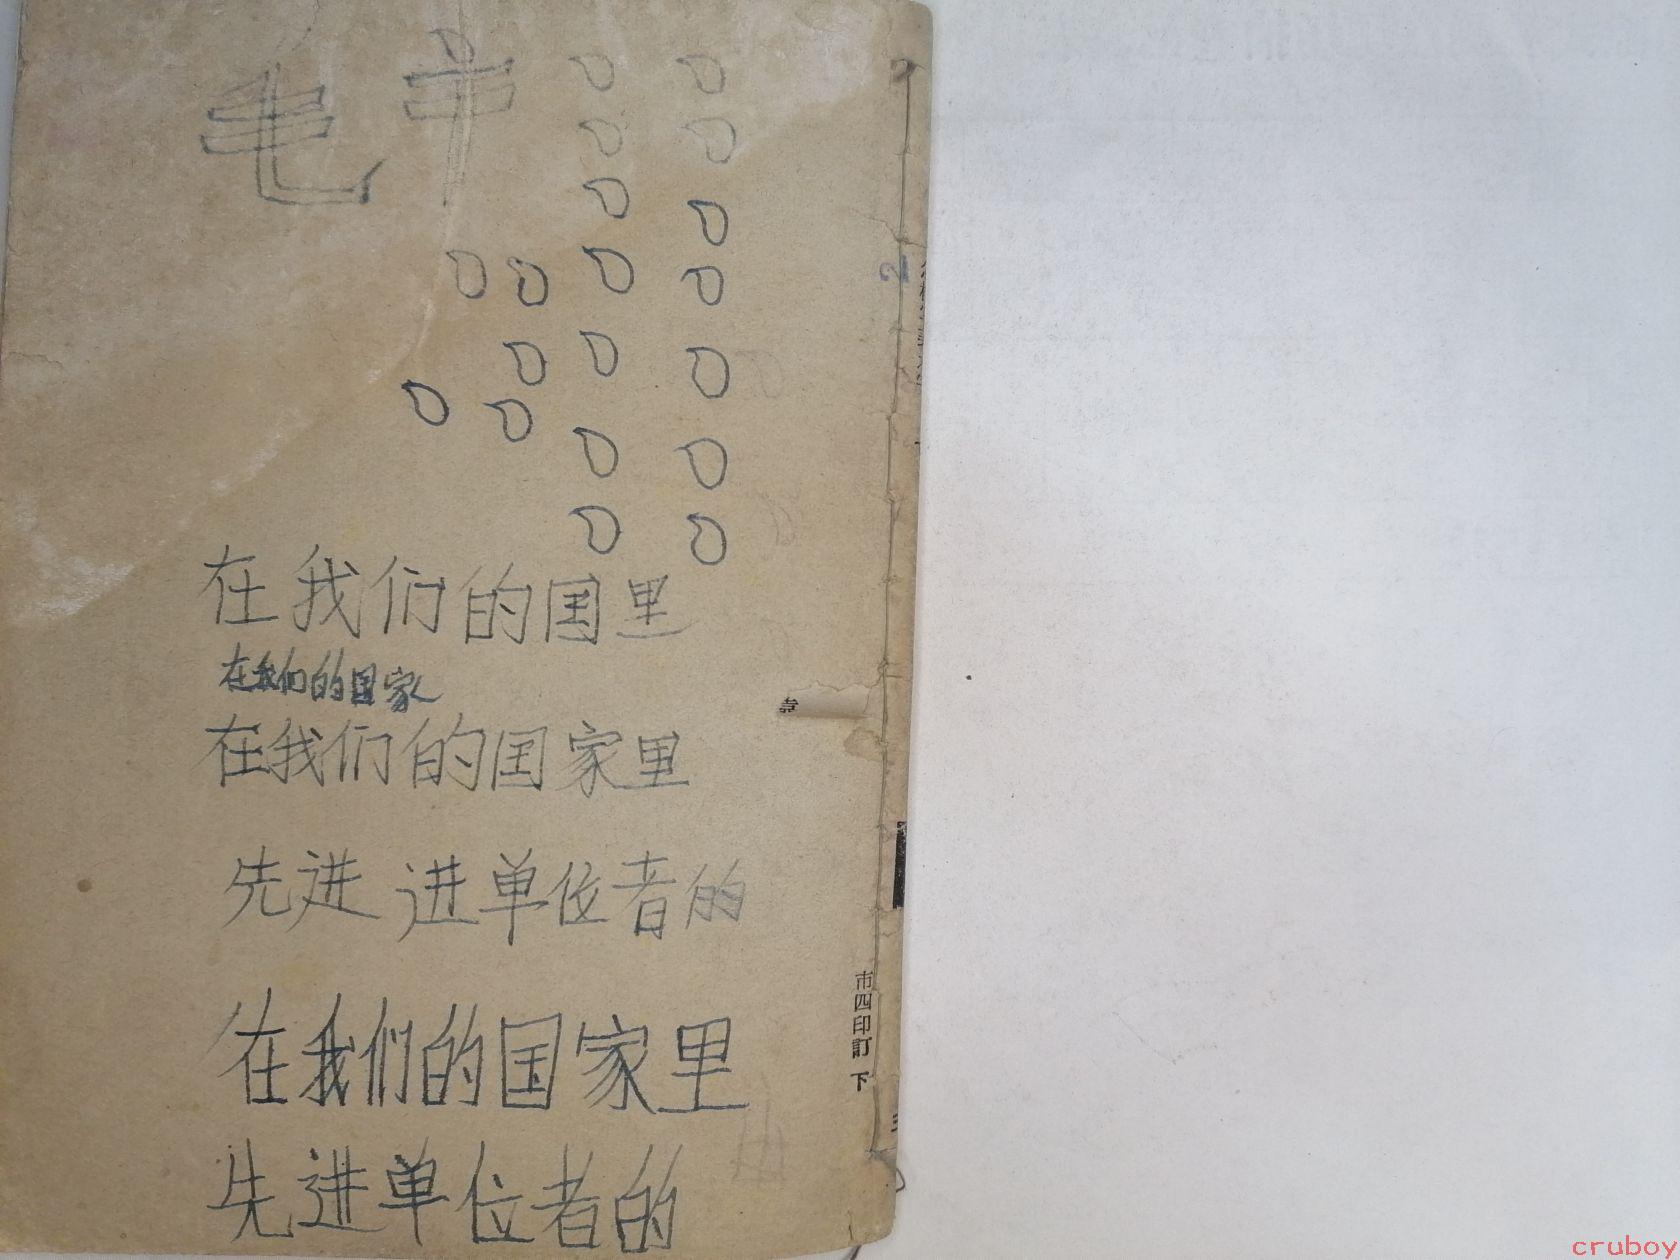 毛 半
在我们的国里
在我们的国家
在我们的国家里
先进 进单位者的
在我们的国家里
先进单位者的
市四印訂 下
2
cruboy